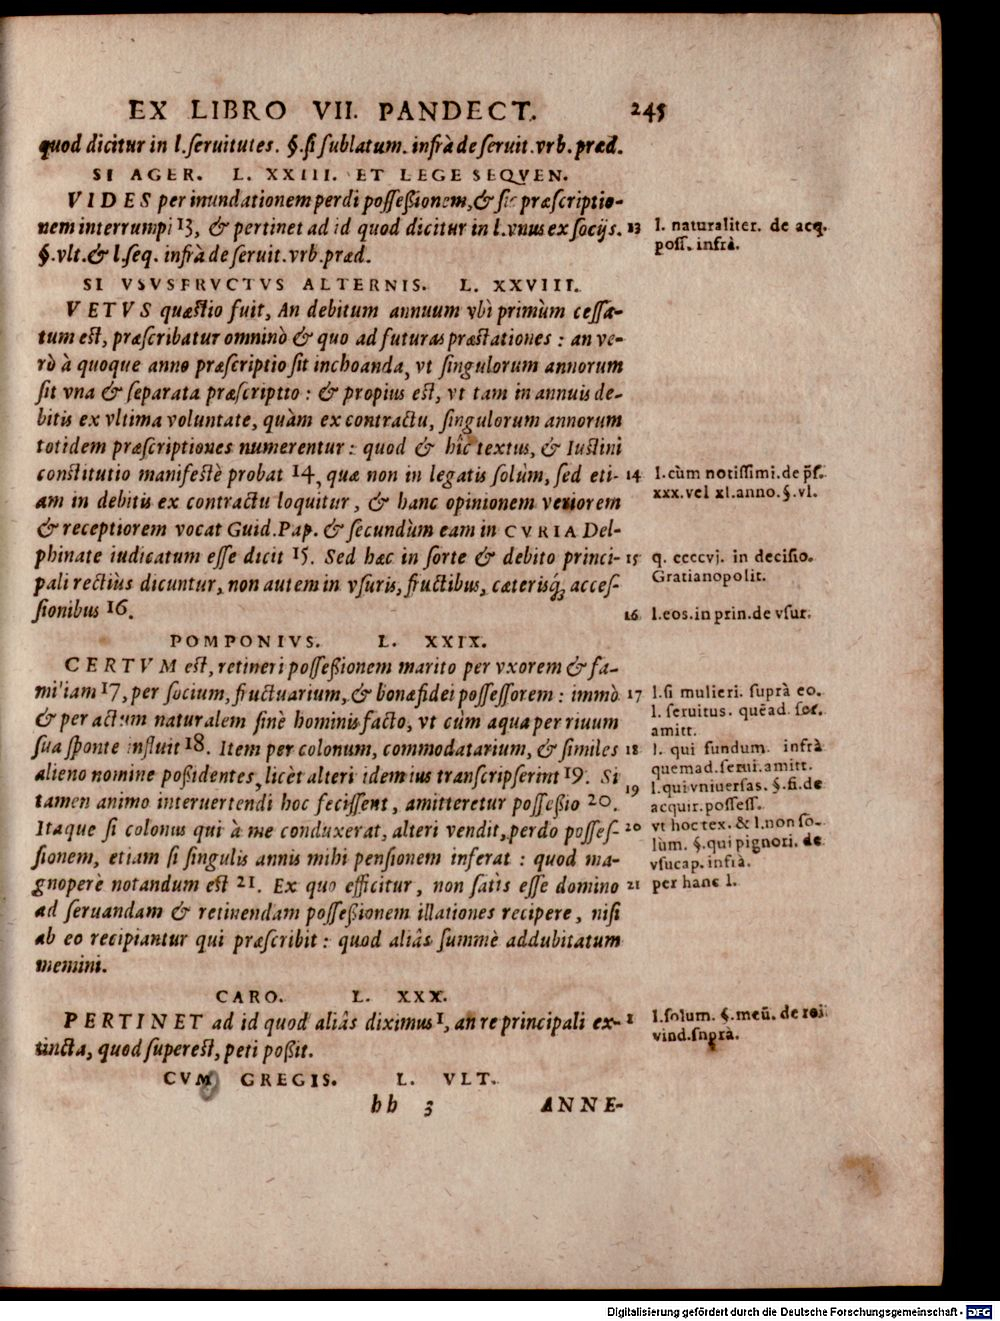 EX LIBRO VII. PANDECT. 245
quod dicitur in l. seruitutes. §. si sublatum. infrà de seruit. vrb. præd.
SI AGER. L. XXIII. ET LEGE SEQVEN.
VIDES per inundationem perdi possessionem, & sic præscriptio-
nem interrumpi 13, & pertinet ad id quod dicitur in l. vnus ex socijs.
§. vlt. & l. seq. infrà de seruit. vrb. præd.
13 l. naturaliter. de acq.
poss. infrà.
SI VSVSFRVCTVS ALTERNIS. L. XXVIII.
VETVS quæstio fuit, An debitum annuum vbi primùm cessa-
tum est, præscribatur omninò & quo ad futuras præstationes : an ve-
rò à quoque anno præscriptio sit inchoanda, vt singulorum annorum
sit vna & separata præscriptio : & propius est, vt tam in annuis de-
bitis ex vltima voluntate, quàm ex contractu, singulorum annorum
totidem præscriptiones numerentur : quod & hîc textus, & Iustini
constitutio manifestè probat 14, quæ non in legatis solùm, sed eti-
am in debitis ex contractu loquitur, & hanc opinionem veriorem
& receptiorem vocat Guid. Pap. & secundùm eam in CVRIA Del-
phinate iudicatum esse dicit 15. Sed hæc in sorte & debito princi-
pali rectiùs dicuntur, non autem in vsuris, fructibus, cæterisq́; acces-
sionibus 16.
14 l. cùm notissimi. de p̃s.
xxx. vel xl. anno. §. vl.
15 q. ccccvj. in decisio.
Gratianopolit.
16 l. eos. in prin. de vsur.
POMPONIVS. L. XXIX.
CERTVM est, retineri possessionem marito per vxorem & fa-
miliam 17, per socium, fructuarium, & bonæ fidei possessorem : immò
& per actum naturalem sinè hominis facto, vt cùm aqua per riuum
sua sponte influit 18. Item per colonum, commodatarium, & similes
alieno nomine possidentes, licèt alteri idem ius transcripserint 19. Si
tamen animo interuertendi hoc fecissent, amitteretur possessio 20.
Itaque si colonus qui à me conduxerat, alteri vendit, perdo posses-
sionem, etiam si singulis annis mihi pensionem inferat : quod ma-
gnoperè notandum est 21. Ex quo efficitur, non satis esse domino
ad seruandam & retinendam possessionem illationes recipere, nisi
ab eo recipiantur qui præscribit : quod aliâs summè addubitatum
memini.
17 l. si mulieri. suprà eo.
l. seruitus. quẽad. ser.
amitt.
18 l. qui fundum. infrà
quemad. serui. amitt.
19 l. qui vniuersas. §. fi. de
acquir. possess.
20 vt hoc tex. & l. non so-
lùm. §. qui pignori. de
vsucap. infrà.
21 per hanc l.
CARO. L. XXX.
PERTINET ad id quod aliâs diximus 1, an re principali ex-
tincta, quod superest, peti possit.
1 l. solum. §. meũ. de rei
vind. suprà.
CVM GREGIS. L. VLT.
bb 3 ANNE-
Digitalisierung gefördert durch die Deutsche Forschungsgemeinschaft - DFG